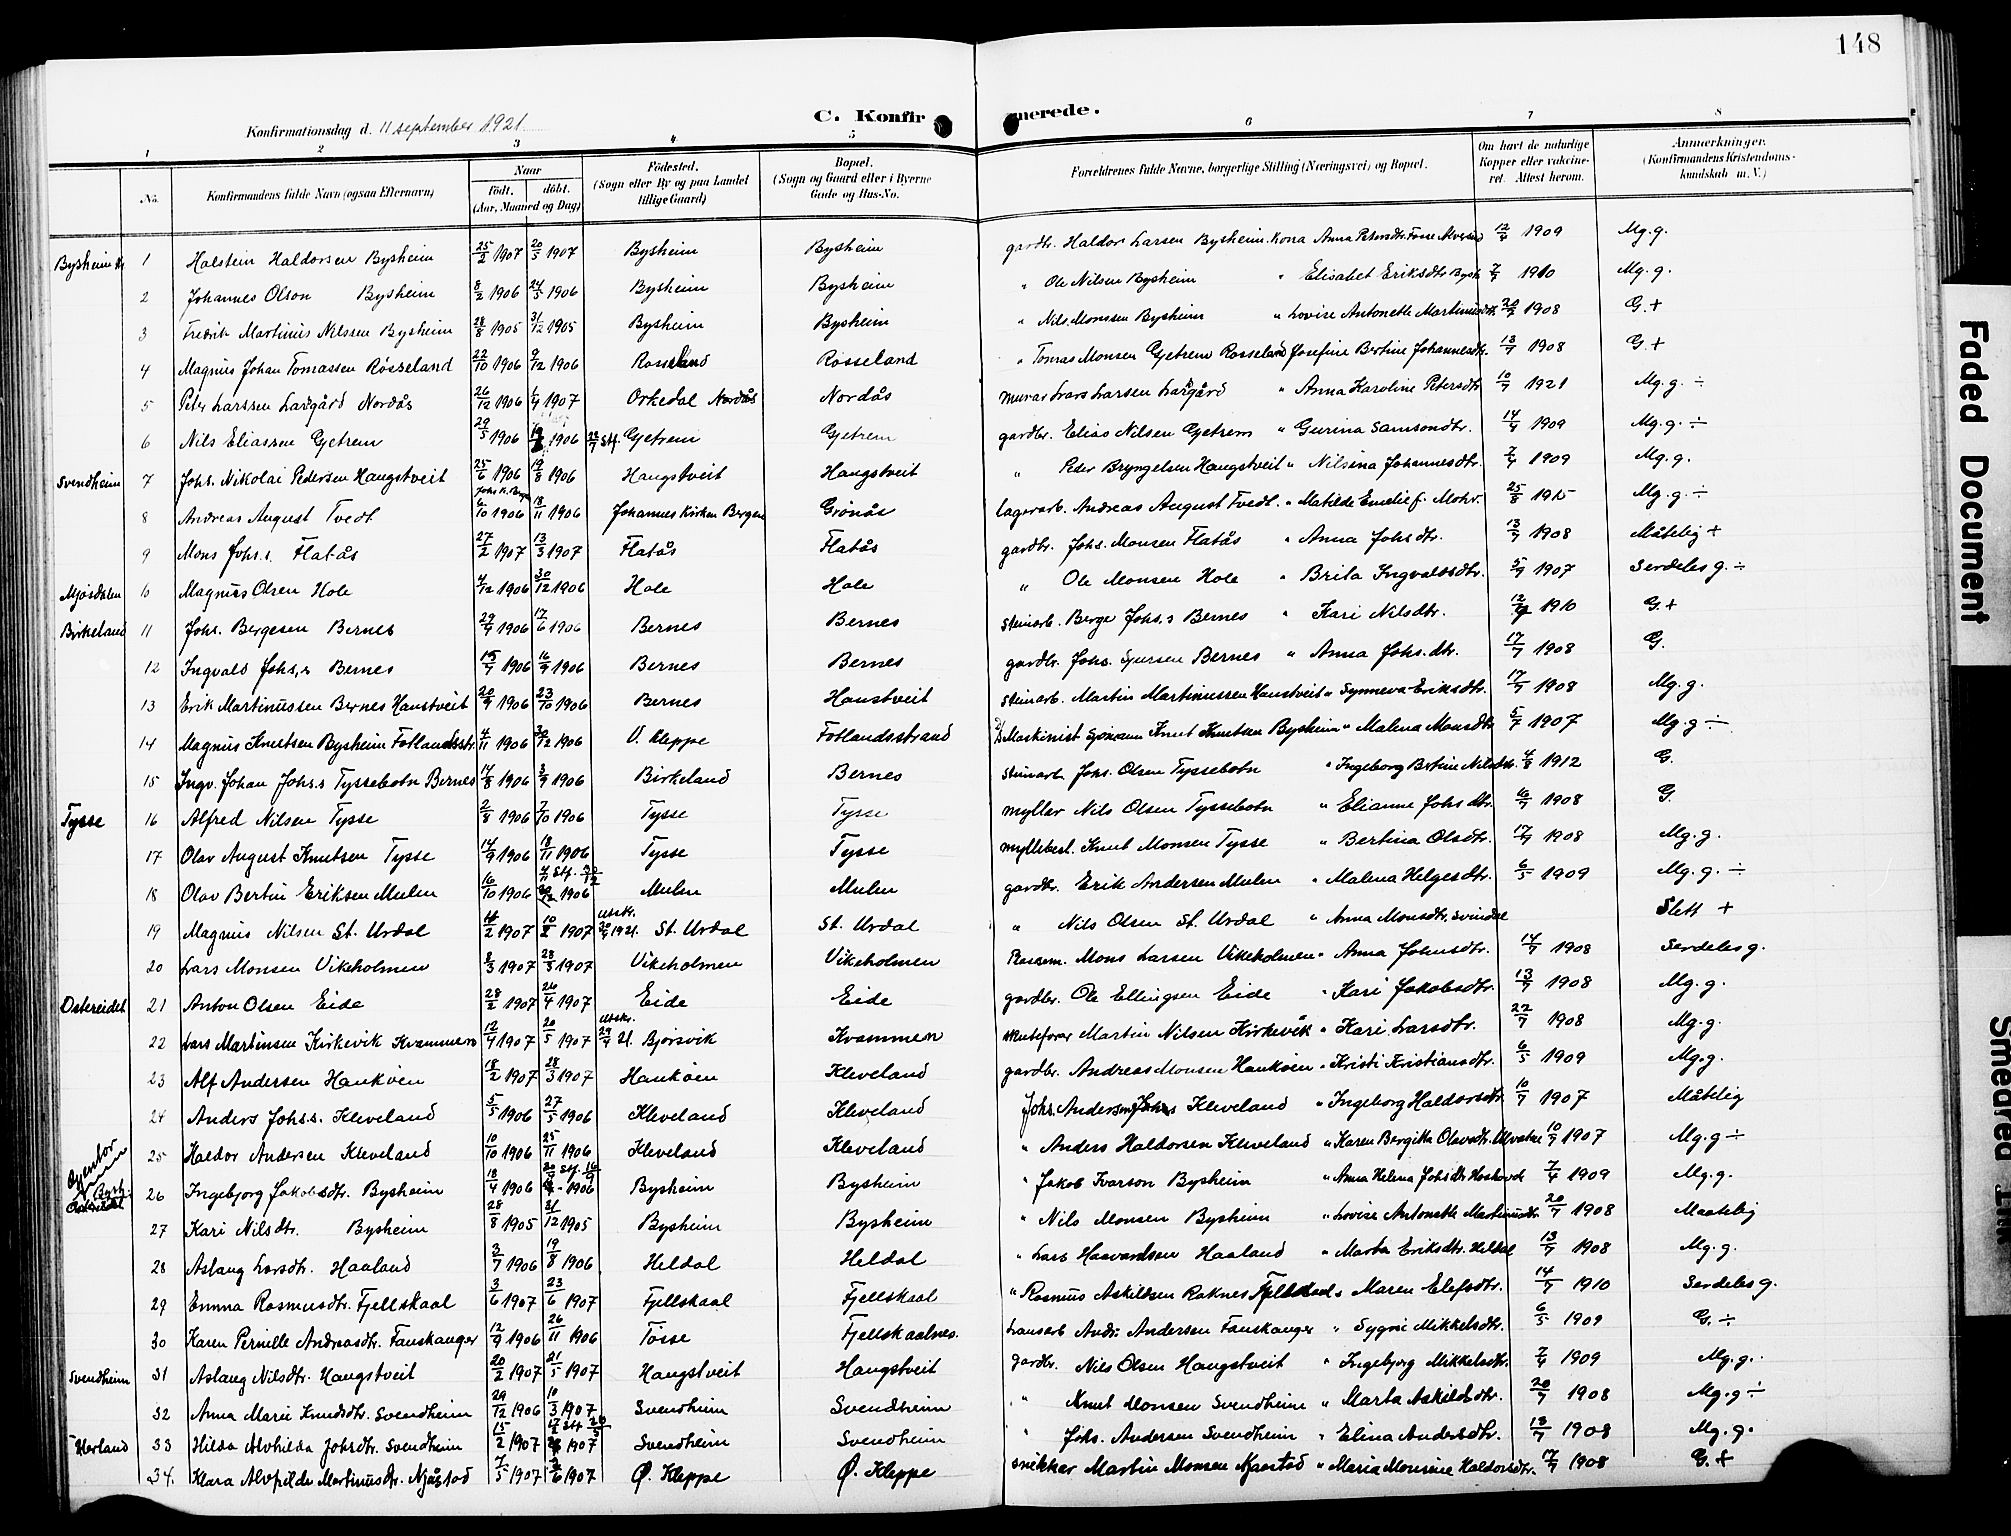 148
Konfirmationsdag d. 11 september 1921. C. Konfirmerede.
1 2 3 4 5 6 7 8
No. Konfirmandens fulde Navn (ogsaa Efternavn) Naar Født. døbt. (Aar, Maaned og Dag) Fødested. (Sogn eller By og paa Landet tillige Gaard) Bopæl. (Sogn og Gaard eller i Byerne Gade og Hus-No. Forældrenes fulde Navne, borgerlige Stilling (Næringsvei) og Bopæl. Om havt de naturlige Kopper eller vaccineret. Attest herom. Anmærkninger. (Konfirmandens Kristendomskundskab m. V.)
1 Halstein Haldorsen Bysheim 25/2 1907 20/5 1907 Bysheim Bysheim gardbr. Haldor Larsen Bysheim. Kona Anna Petersdtr. 12/4 1909 Mg.g.
2 Johannes Olson Bysheim 8/2 1906 24/5 1906 Bysheim Bysheim " Ole Nilsen Bysheim " Elisabet Eriksdtr 1910 Mg.g.
3 Fredrik Martinus Nilssen Bysheim 28/8 1905 31/12 1905 Bysheim Bysheim " Nils Monsen Bysheim " Lovise Antonette Martinusdtr. 20/7 1908 G.+
4 Magnus Johan Tomassen Rosseland 22/10 1906 9/12 1906 Rosseland Rosseland " Tomas Monsen Gjetrem Rosseland Josefine Bertine Johannesdtr. 13/7 1908 G.+
5 Peter Larssen Laxgård Nordås 26/12 1906 1/4 1907 Orkedal Nordås Nordås murar Lars Larsen Laxgård " Anna Karoline Petersdtr 10/7 1921 Mg.g. ÷
6 Nils Eliassen Gjetrem 29/5 1906 1906 Gjetrem Gjetrem gardbr. Elias Nilsen Gjetrem " Gurina Samsondtr. 14/4 1909 Mg.g. ÷
Svendheim 7 Johs. Nikolai Pedersen Haugstveit 25/6 1906 19/8 1906 Haugstveit Haugstveit " Peder Bryngelsen Haugstveit " Nilsina Johannesdtr. 7/4 1909 Mg.g.
8 Andreas August Tvedt 6/10 1906 18/11 1906 Johannes Kirken Bergen Grönås lagerarb. Andreas August Tvedt. " Matilde Emelie f. Mohr. 25/8 1915 Mg.g. ÷
9 Mons Johs.s. Flatås 27/2 1907 13/3 1907 Flatås Flatås gardbr. Johs. Monsen Flatås " Anna Johsdtr. 13/7 1908 Måtelig +
Mjøsdalen 10 Magnus Olsen Hole 4/12 1906 30/12 1906 Hole Hole " Ole Monsen Hole " Brita Ingvaldsdtr. 5/7 1907 Serdeles g. ÷
Birkeland 11 Johs. Bergesen Bernes 29/4 1906 17/6 1906 Bernes Bernes steinarb. Berge Johs.s Bernes " Kari Nilsdtr. 1910 G.+
12 Ingvald Johs.s Bernes 15/7 1906 16/9 1906 Bernes Bernes gardbr. Johs. Bernes " Anna Johs.dtr. 17/7 1908 G.
13 Erik Martinussen Bernes Haustveit 20/9 1906 23/10 1906 Bernes Haustveit steinarb. Martin Martinussen Haustveit " Synneva Eriksdtr. 17/7 1908 Mg.g.
14 Magnus Knutsen Bysheim Fotlandsstr. 4/11 1906 30/12 1906 V. Kleppe Fotlandsstrand Maskinist Knut Knutsen Bysheim " Malena Monsdtr 5/7 1907 Mg.g ÷
15 Ingv. Johan Johs.s Tyssebotn Bernes 14/8 1906 3/9 1906 Birkeland Bernes steinarb. Johs. Olsen Tyssebotn " Ingeborg Bertine Nilsdtr. 4/8 1912 G.
Tysse 16 Alfred Nilsen Tysse 2/8 1906 7/10 1906 Tysse Tysse myllar Nils Olsen Tyssebotn " Elianne Johsdtr. 6/7 1908 G.
17 Olav August Knutsen Tysse 14/9 1906 18/11 1906 Tysse Tysse myllebest. Knut Monsen Tysse " Bertina Olsdtr. 17/7 1908 Mg.g.
18 Olav Bertin Eriksen Mulen 16/10 1906 1906 Mulen Mulen gardbr. Erik Andersen Mulen " Malena Helgesdtr. 6/5 1909 Mg.g. ÷
19 Magnus Nilsen St. Urdal 1907 10/2 1907 St. Urdal St. Urdal " Nils Olsen St. Urdal " Anna Monsdtr. Slett +
20 Lars Monsen Vikeholmen 8/3 1907 28/3 1907 Vikeholmen Vikeholmen Mons Larsen Vikeholmen " Anna Johnsdtr. 14/7 1908 Serdeles g.
Ostereidet 21 Anton Olsen Eide 28/2 1907 26/4 1907 Eide Eide gardbr. Ole Ellingsen Eide " Kari Jakobsdtr. 13/7 1908 Mg.g.
22 Lars Martinsen Kirkevik Kvammen 12/4 1907 20/5 1907 Bjorsvik Kvammen Martin Nilsen Kirkevik " Kari Larsdtr. 22/7 1908 Mg.g.
23 Alf Andersen Haukøen 18/2 1907 28/3 1907 Haukøen Kleveland gardbr. Andreas Monsen Haukøen " Kristi Kristiansdtr. 6/5 1909 Mg.g.
24 Anders Johs.s. Kleveland 5/5 1906 27/5 1906 Kleveland Kleveland Johs. Andersen Kleveland " Ingeborg Haldorsdtr. 10/7 1907 Måtelig
25 Haldor Andersen Kleveland 10/10 1906 25/11 1906 Kleveland Kleveland " Anders Haldorsen Kleveland " Karen Bergitta Olavsdtr. 10/7 1907 Mg.g ÷
26 Ingebjorg Jakobsdtr. Bysheim 18/4 1906 1906 Bysheim Bysheim " Jakob Ivarson Bysheim " Anna Helena Johsdtr 7/4 1909 Mg.g.
27 Kari Nilsdtr. Bysheim 28/8 1905 31/12 1905 Bysheim Bysheim " Nils Monsen Bysheim " Lovise Antonette Martinusdtr. 20/7 1908 Maatelig
28 Aslaug Larsdtr. Haaland 3/7 1906 19/8 1906 Heldal Heldal " Lars Haavardsen Haaland " Marta Eriksdtr. Heldal 13/7 1908 Mg.g.
29 Emma Rasmusdtr. Fjellskaal 3/6 1907 23/6 1907 Fjellskaal Fjellskaal " Rasmus Askildsen Raknes Fjellskaal " Maren Elefsdtr. 14/7 1910 Serdeles g.
30 Karen Pernille Andreasdtr. Fauskanger 12/9 1906 26/11 1906 Tösse Fjellskaalnes. Lausarb. Andr. Andersen Fauskanger " Sygni Mikkelsdtr. 6/5 1909 G. ÷
Svendheim 31 Aslaug Nilsdtr. Haugstveit 20/2 1907 21/5 1907 Haugstveit Haugstveit gardbr. Nils Olsen Haugstveit " Ingebjorg Mikkelsdtr. 7/4 1909 Mg.g.
32 Anna Marie Knudsdtr. Svendheim 29/12 1906 10/3 1907 Svendheim Svendheim " Knut Monsen Svendheim " Marta Askildsdtr. 20/7 1908 Mg.g ÷
Herland 33 Hilda Alvhilda Johsdtr. Svendheim 15/2 1907 1907 Svendheim Svendheim " Johs. Andersen Svendheim " Elina Andersdtr. 13/7 1908 Mg.g.
34. Klara Alvhilde Martinusdtr. Njåstad 7/5 1907 1907 Ø. Kleppe Ø. Kleppe snikkar Martin Monsen Njaastad " Maria Monsine Haldorsdtr. 17/7 1908 G.+
Faded Document
Smeared Ink